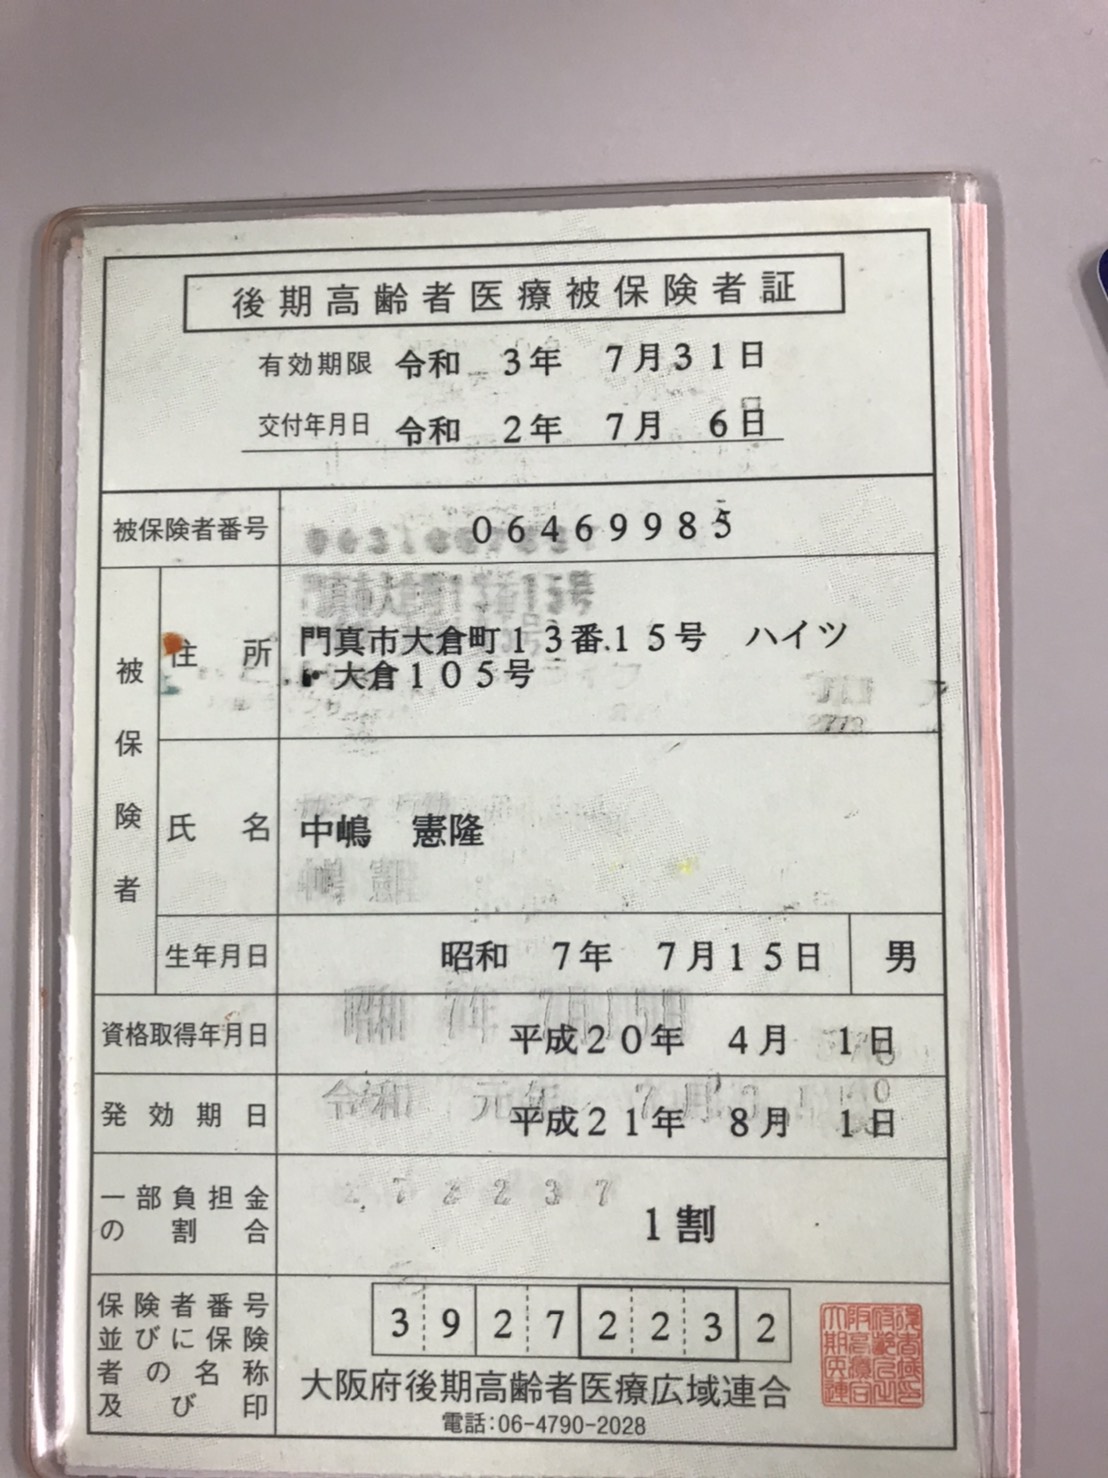 後期高齢者医療被保険者証
有効期限 令和 3年 7月31日
交付年月日 令和 2年 7月 6日
被保険者番号 06469985
被保険者
住所 門真市大倉町13番15号 ハイツ
大倉105号
氏名 中嶋 憲隆
生年月日 昭和 7年 7月15日 男
資格取得年月日 平成20年 4月 1日
発効期日 平成21年 8月 1日
一部負担金
の割合 1割
保険者番号 39272232
並びに保険
者の名称 大阪府後期高齢者医療広域連合
及び印 電話:06-4790-2028